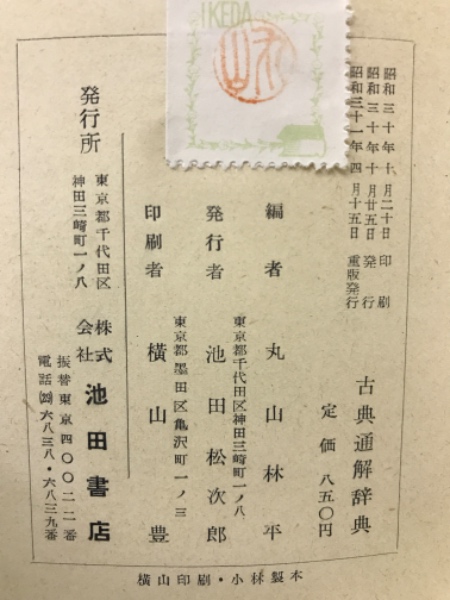 IKEDA
昭和三十年十月二十日 印刷
昭和三十年十月廿五日 発行
昭和三十一年四月十五日 重版発行
古典通解辞典
定価 八五〇円
編者 丸山林平
東京都千代田区神田三崎町一ノ八
発行者 池田松次郎
東京都墨田区亀沢町一ノ三
印刷者 横山豊
発行所
東京都千代田区
神田三崎町一ノ八
株式会社 池田書店
振替東京四〇〇二二一番
電話 六八三八・六八三九番
横山印刷・小林製本